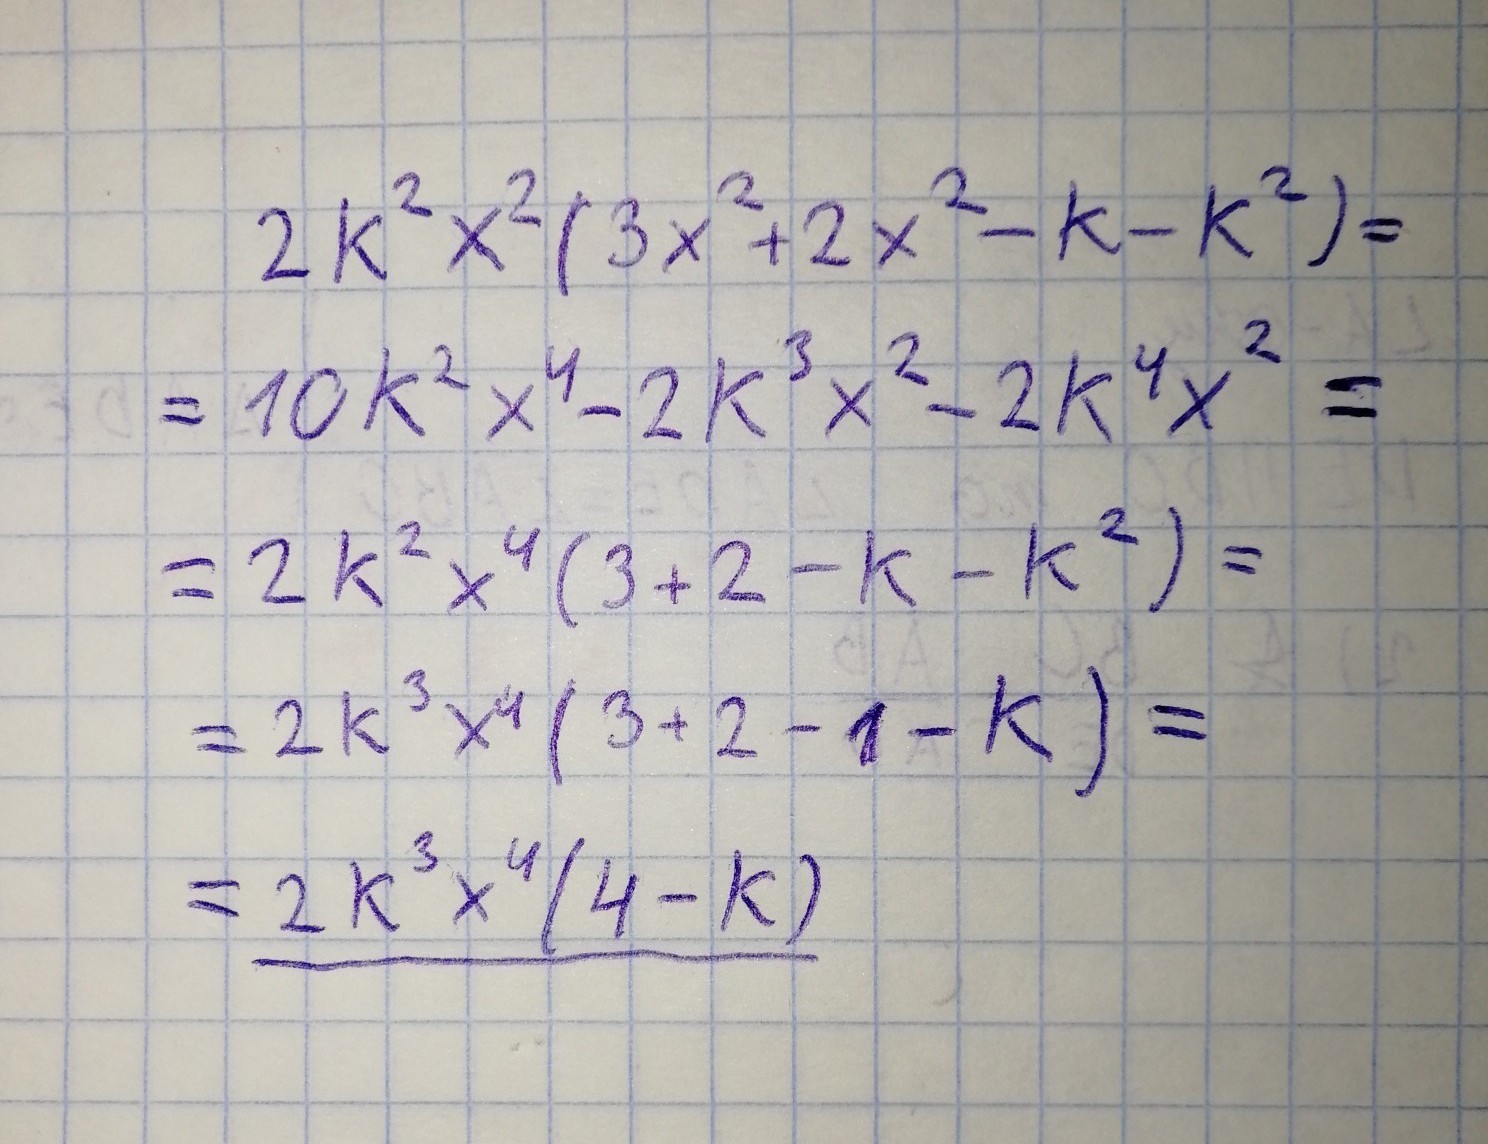 2k²x²(3x²+2x²-k-k²)=
=10k²x⁴-2k³x²-2k⁴x²=
=2k²x⁴(3+2-k-k²)=
=2k³x⁴(3+2-1-k)=
=2k³x⁴(4-k)